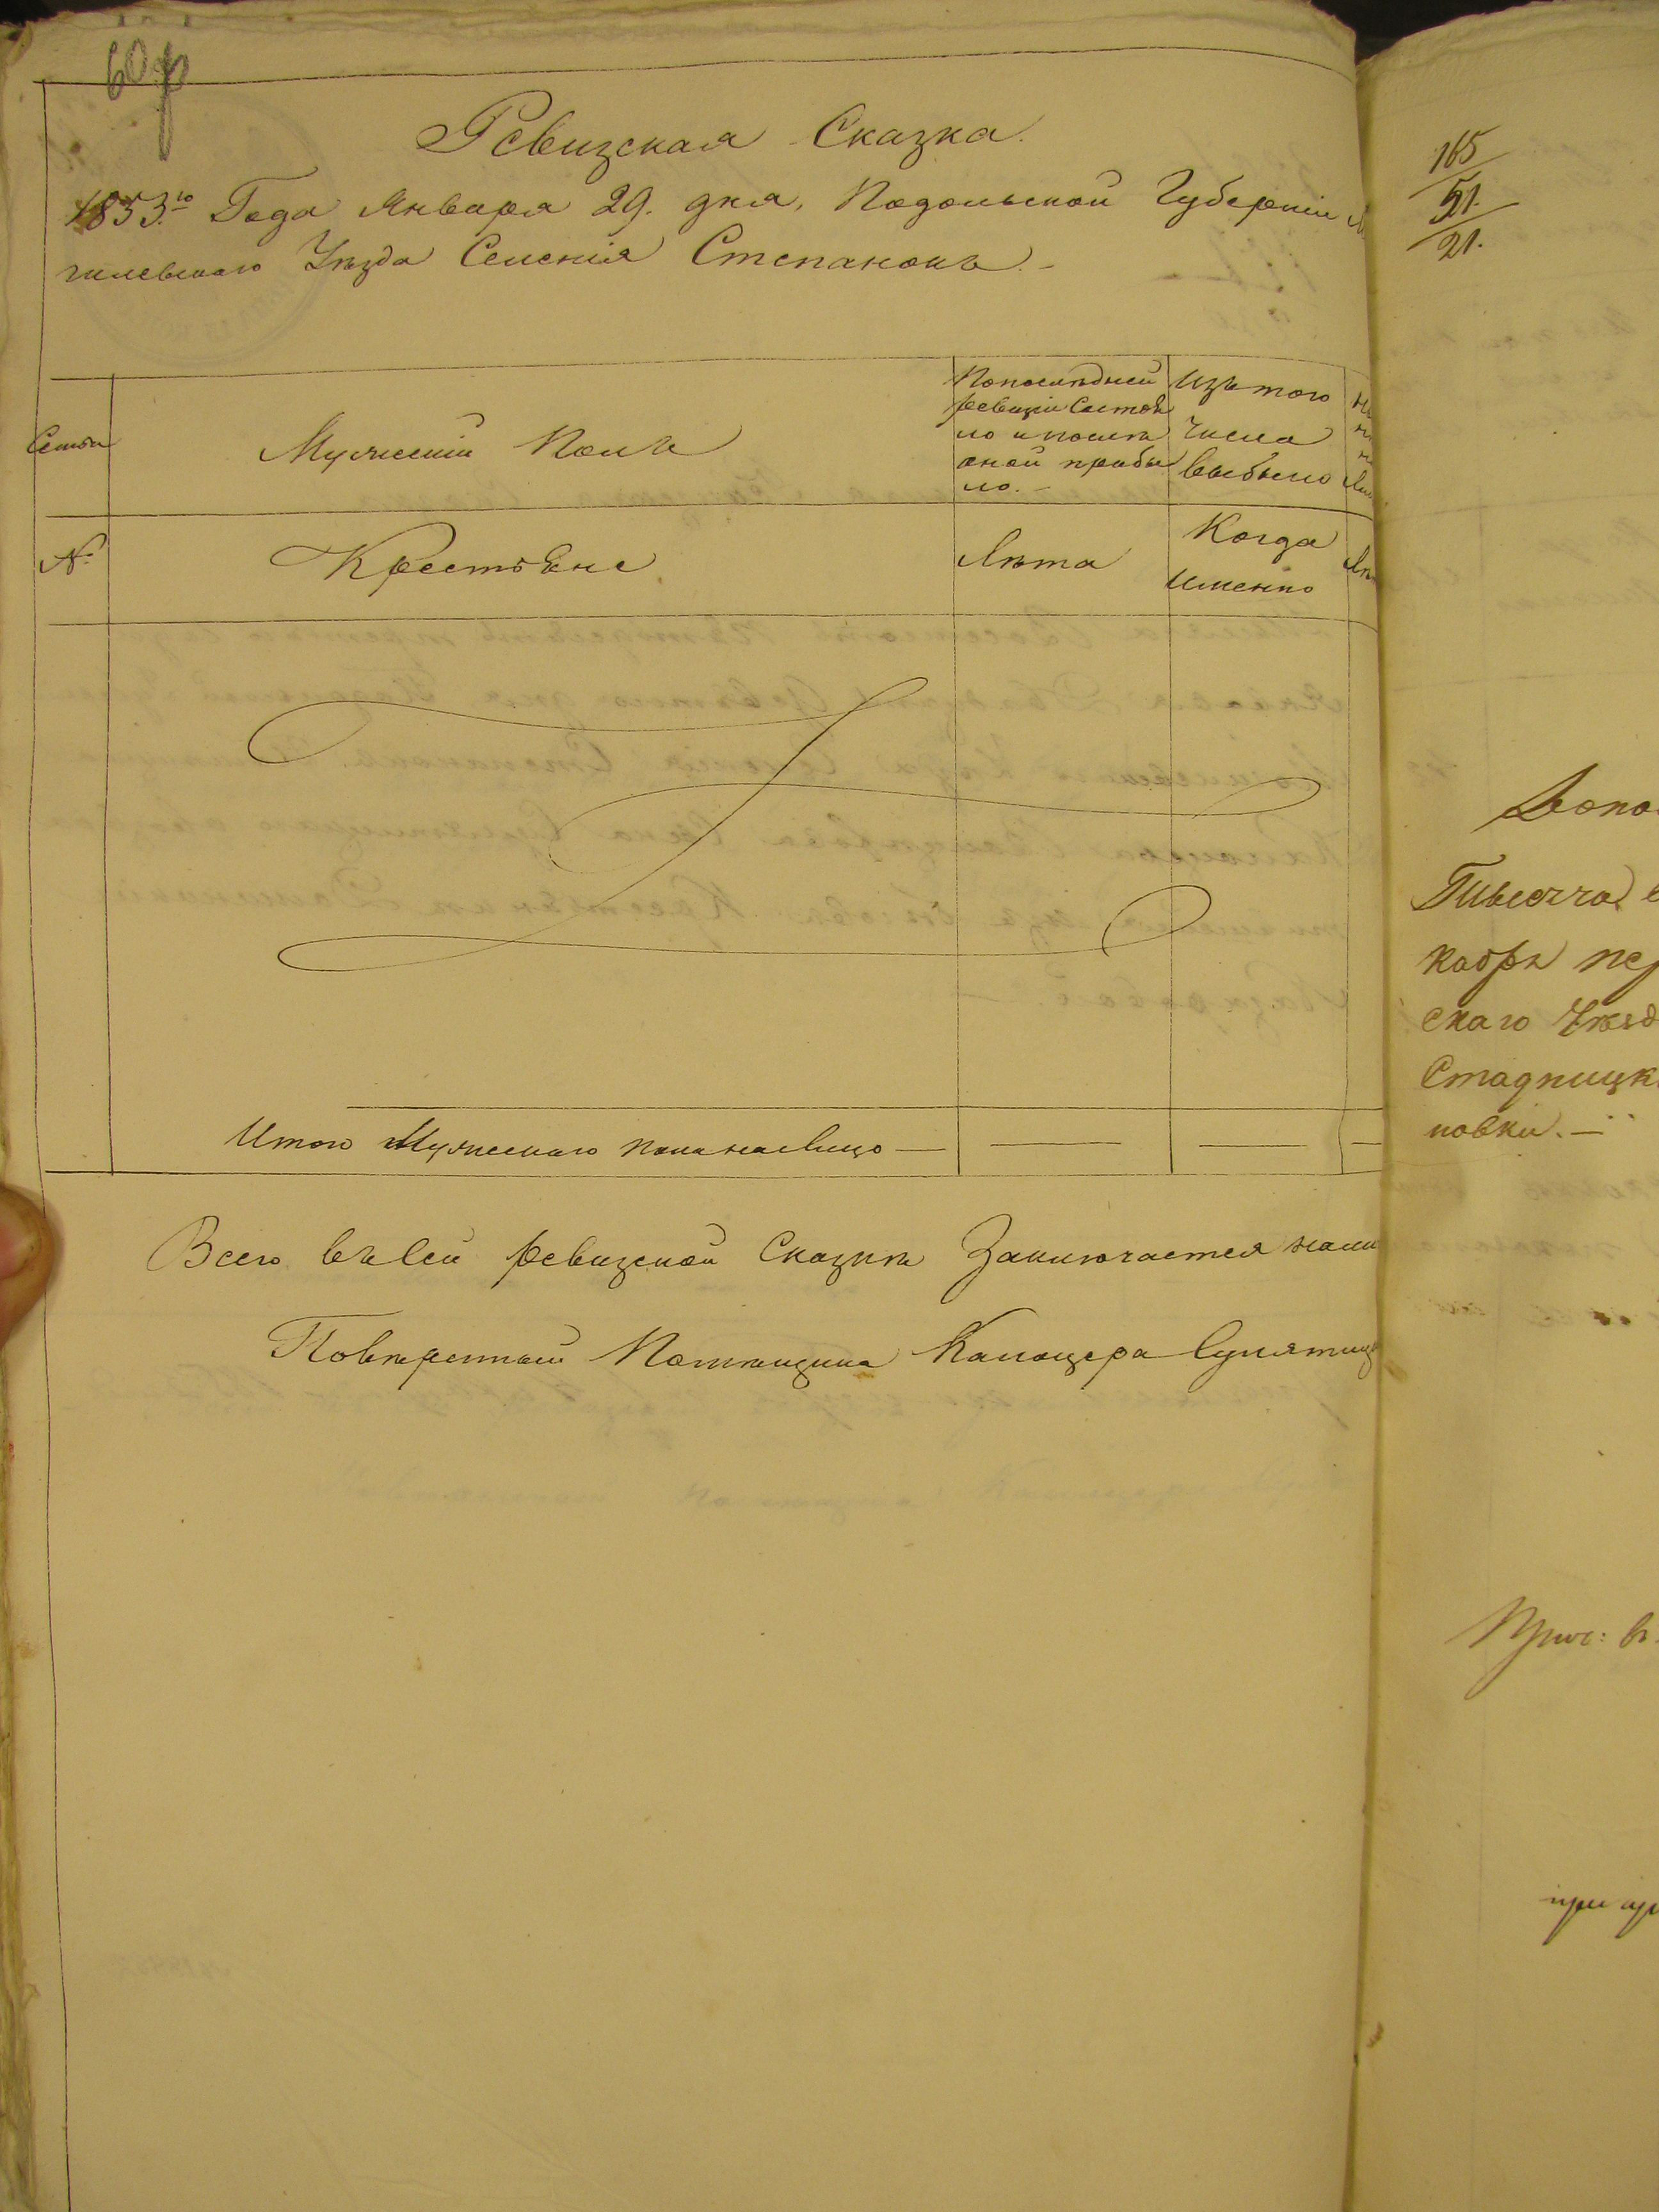 60
Ревизская Сказка.
1853.го Года Января 29. дня, Подольской Губерніи
гилевскаго Уѣзда Селенія Степанокъ. -
Семьи
Мужескій Полъ
Попослѣдней
ревизіи Состоя
ло и послѣ
оной прибы
ло. -
Изъ того
Числа
выбыло
№
Крестьяне
Лѣта
Когда
Именно
Итого Мужескаго пола налицо —
Всего въ Сей ревизской Сказкѣ Заключается нали
Повѣренный Помѣщика Каліоцера Сулятиц
165
51.
21.
кабря пер
скаго Уѣзд
Стадницк
новки. —
при